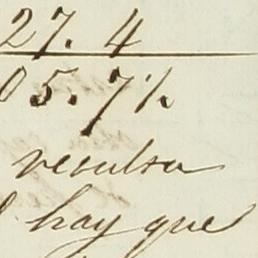 27. 4
05. 7½
resulta
hay que